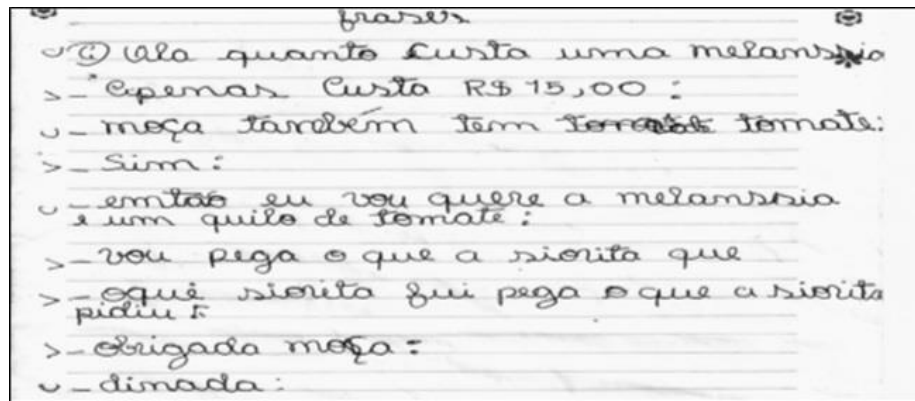 frases
C) Ola quanto custa uma melanssia
- Apenas Custa R$ 15,00 :
- moça também tem tomate:
- Sim :
- emtão eu vou quere a melanssia
e um quilo de tomate :
- vou pega o que a siorita que
- oque siorita fui pega o que a siorita
pidiu
- obrigada moça :
- dinada :